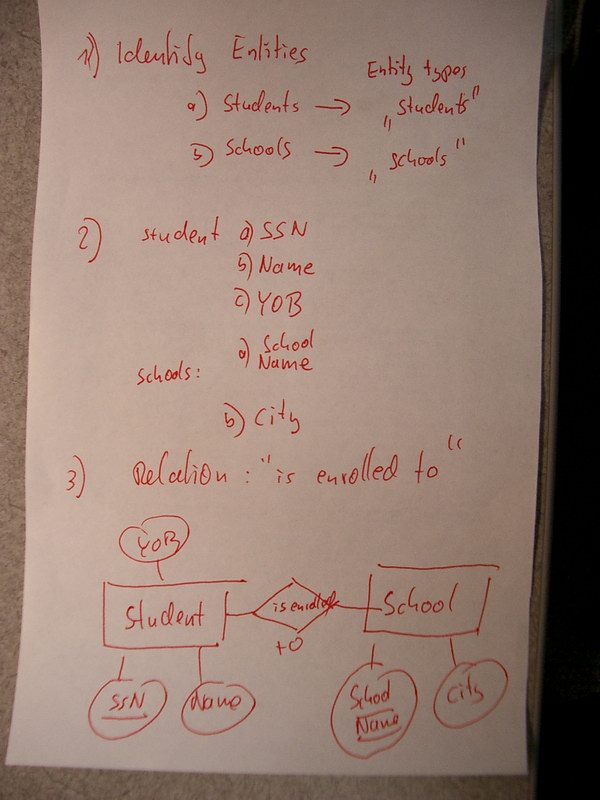 1) Identify Entities
Entity types
a) Students → „Students"
b) Schools → „schools"
2) student a) SSN
b) Name
c) YOB
schools: a) School
Name
b) City
3) Relation: "is enrolled to"
YOB
Student is enrolled School
to
SSN Name School City
Name